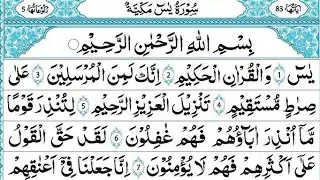 اٰيَاتُهَا 83 سُوْرَةُ يٰسٓ مَكِّيَّةٌ رُكُوْعَاتُهَا 5
بِسْمِ اللّٰهِ الرَّحْمٰنِ الرَّحِيْمِ
يٰسٓ 1 وَالْقُرْاٰنِ الْحَكِيْمِ 2 اِنَّكَ لَمِنَ الْمُرْسَلِيْنَ 3 عَلٰى
صِرَاطٍ مُّسْتَقِيْمٍ 4 تَنْزِيْلَ الْعَزِيْزِ الرَّحِيْمِ 5 لِتُنْذِرَ قَوْمًا
مَّاۤ اُنْذِرَ اٰبَآؤُهُمْ فَهُمْ غٰفِلُوْنَ 6 لَقَدْ حَقَّ الْقَوْلُ
عَلٰۤى اَكْثَرِهِمْ فَهُمْ لَا يُؤْمِنُوْنَ 7 اِنَّا جَعَلْنَا فِيْۤ اَعْنَاقِهِمْ